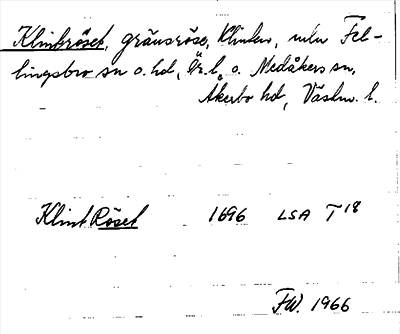 Klintröset, gränsröse, Klinten, mln Fel-
lingsbro sn o. hd, Ör. l. o. Medåkers sn,
Åkerbo hd, Västm. l.
Klint Röset 1696 LSA T 18
FW. 1966